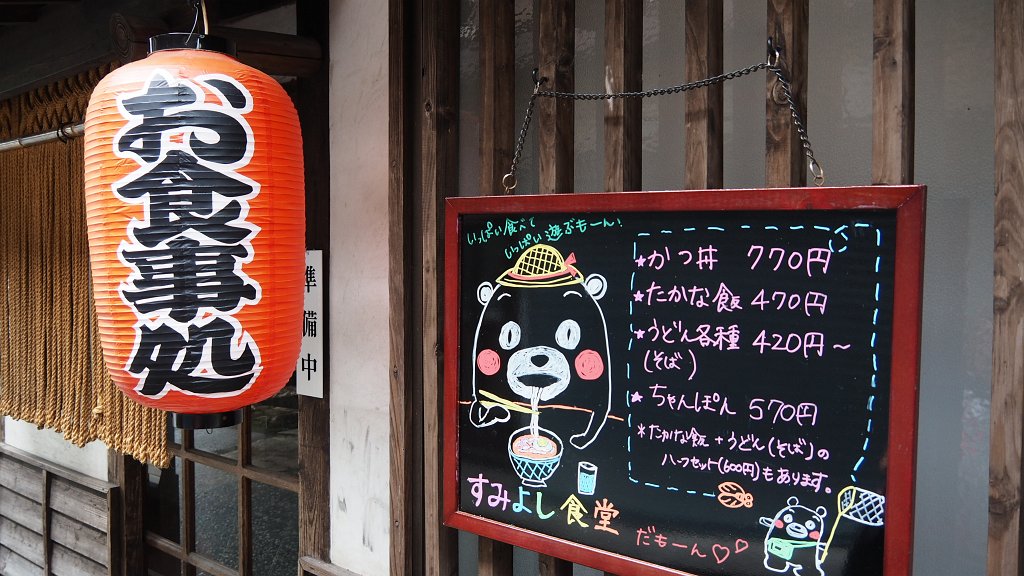 お食事処
準備中
いっぱい食べて
いっぱい遊ぶもーん!
★かつ丼 770円
★たかな飯 470円
★うどん各種 420円~
(そば)
★ちゃんぽん 570円
*たかな飯+うどん(そば)の
ハーフセット(600円)もあります。
すみよし食堂
だもーん♡♡